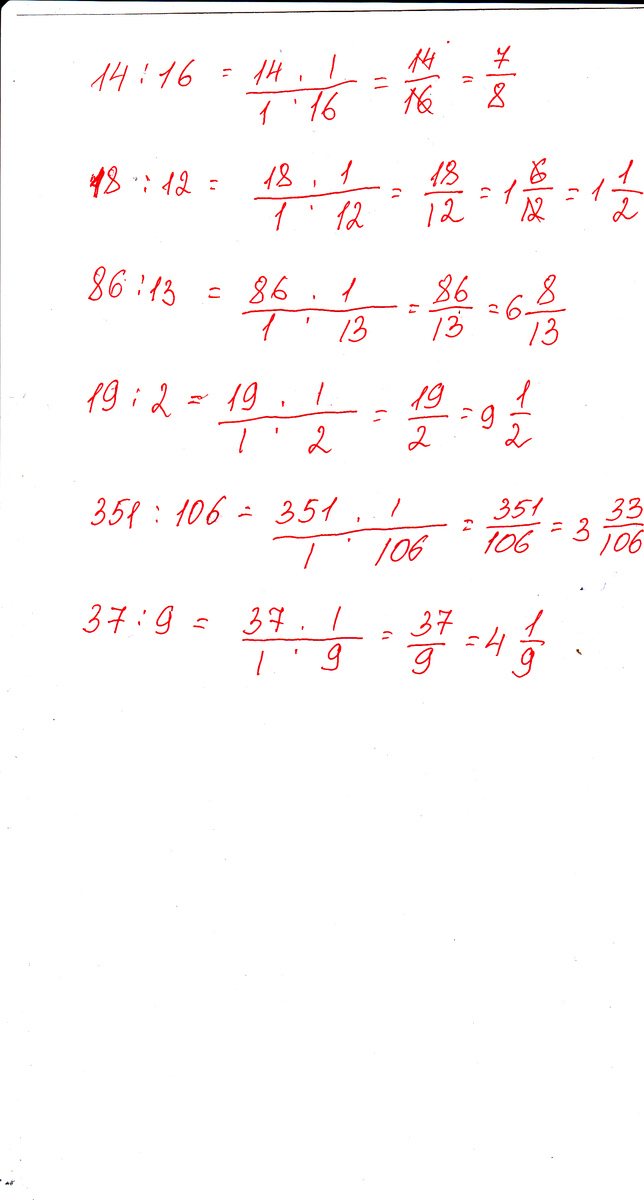 14 : 16 = 14 · 1 / 1 · 16 = 14/16 = 7/8
18 : 12 = 18 · 1 / 1 · 12 = 18/12 = 1 6/12 = 1 1/2
86 : 13 = 86 · 1 / 1 · 13 = 86/13 = 6 8/13
19 : 2 = 19 · 1 / 1 · 2 = 19/2 = 9 1/2
351 : 106 = 351 · 1 / 1 · 106 = 351/106 = 3 33/106
37 : 9 = 37 · 1 / 1 · 9 = 37/9 = 4 1/9